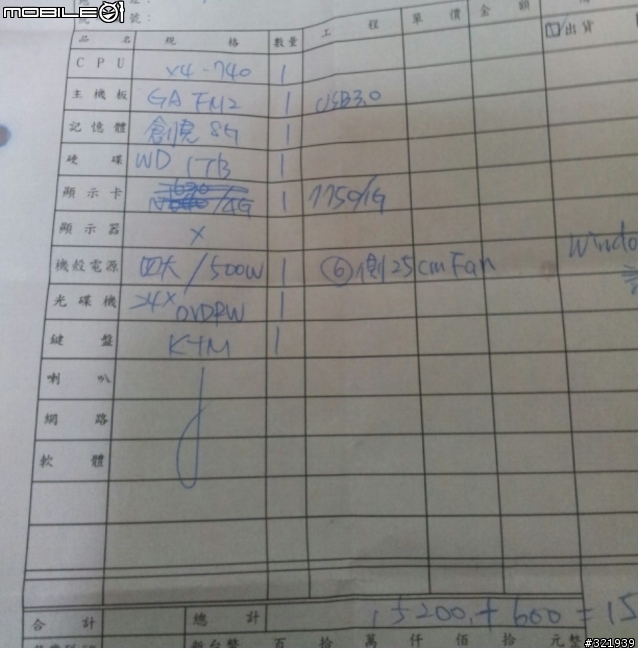 MOBILE01
號：
品 名 規 格 數量 工 程 單 價 金 額 出貨
CPU X4-740 1
主機板 GA FM2 1 USB3.0
記憶體 創見 8G 1
硬碟 WD 1TB 1
顯示卡 /4G 1 7750/1G
顯示器 X
機殼電源 四大/500W 1 ⑥側25cm Fan Windo
光碟機 24X DVDRW 1
鍵盤 K+M 1
喇叭
網路
軟體
合計 總計 15200+600=15
新台幣 百 拾 萬 仟 佰 拾 元整
#321939